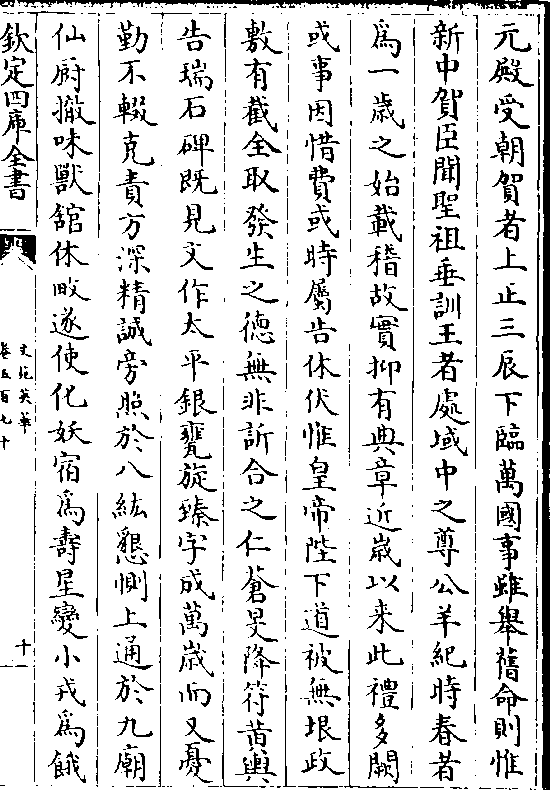 元殿受朝賀者上正三辰下臨萬國事雖舉舊命則惟
新中賀臣聞聖祖垂訓王者處域中之尊公羊紀時春者
爲一歲之始載稽故實抑有典章近嵗以来此禮多闕
或事因惜費或時屬告休伏惟皇帝陛下道被無垠政
敷有截全取發生之徳無非訢合之仁蒼旻降符黄輿
告瑞石碑既見文作太平銀甕旋臻字成萬歳而又憂
勤不輟克責方深精誠旁照於八紘懇惻上通於九廟
仙厨撤味獸舘休畋遂使化妖宿爲壽星變小戎爲餓
欽定四庫全書
文苑英華
卷五百七十
十